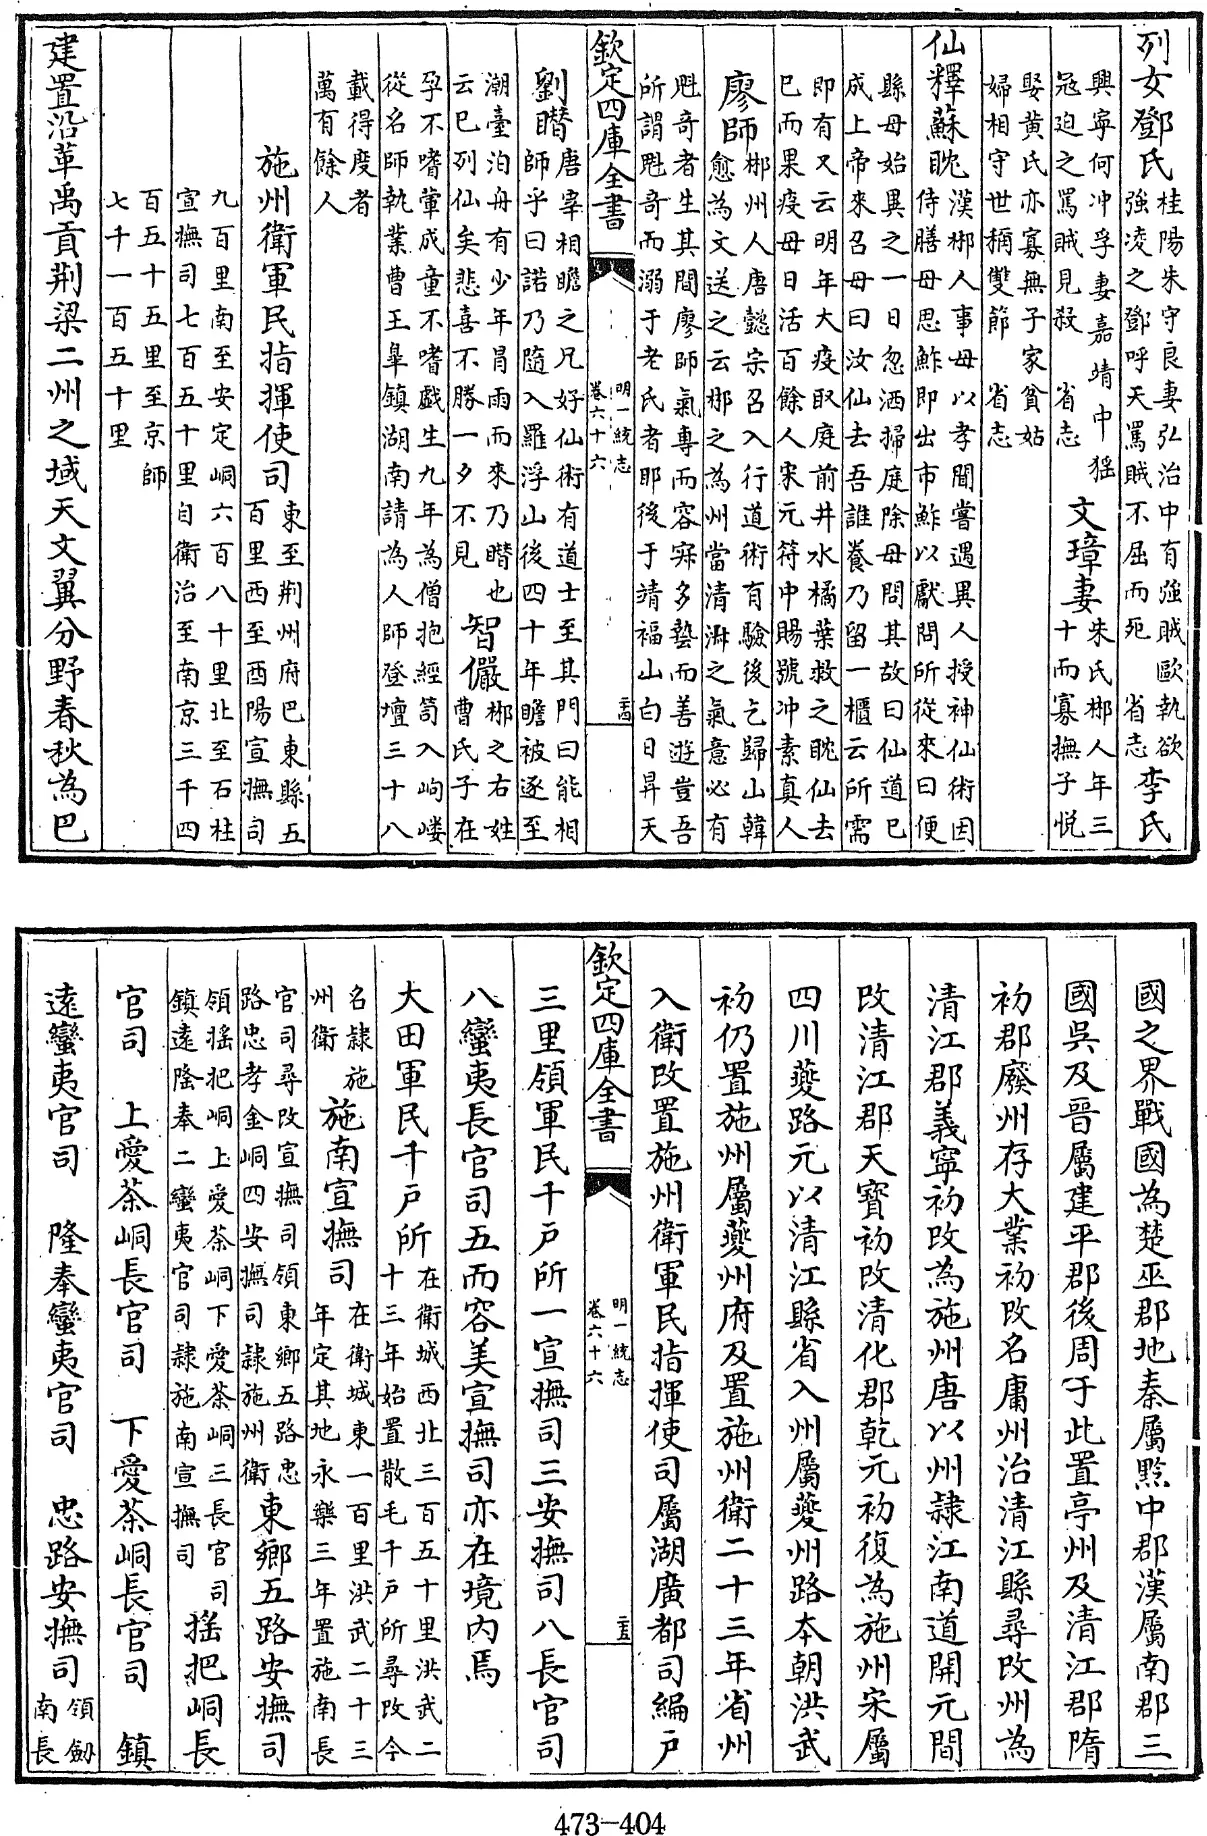 列女鄧氏桂陽朱守良妻弘治中有強賊歐執欲強凌之鄧呼天罵賊不屈而死 省志 李氏
興寧何冲孚妻嘉靖中猺冦迫之罵賊見殺 省志 文璋妻朱氏郴人年三十而寡撫子悅
娶黄氏亦寡無子家貧姑婦相守世稱雙節 省志
仙釋蘇眈漢郴人事母以孝聞嘗遇異人授神仙術因侍膳母思鮓即出市鮓以獻問所從來曰便
縣母始異之一日忽洒掃庭除母問其故曰仙道已成上帝來召母曰汝仙去吾誰養乃留一櫃云所需
即有又云明年大疫取庭前井水橘葉救之眈仙去已而果疫母日活百餘人宋元符中賜號冲素真人
廖師郴州人唐懿宗召入行道術有驗後乞歸山韓愈為文送之云郴之為州當清淑之氣意必有
魁奇者生其間廖師氣專而容寂多藝而善遊豈吾所謂魁奇而溺于老氏者耶後于靖福山白日昇天
欽定四庫全書 明一統志 卷六十六 二十四
劉䁮唐宰相瞻之兄好仙術有道士至其門曰能相師乎曰諾乃隨入羅浮山後四十年瞻被逐至
潮臺泊舟有少年冒雨而來乃䁮也云已列仙矣悲喜不勝一夕不見 智儼郴之右姓曹氏子在
孕不嗜葷成童不嗜戲生九年為僧抱經笥入岣嶁從名師執業曹王臯鎮湖南請為人師登壇三十八
載得度者萬有餘人
施州衛軍民指揮使司東至荆州府巴東縣五百里西至酉陽宣撫司
九百里南至安定峒六百八十里北至石柱宣撫司七百五十里自衛治至南京三千四
百五十五里至京師七千一百五十里
建置沿革禹貢荆梁二州之域天文翼分野春秋為巴
國之界戰國為楚巫郡地秦屬黔中郡漢屬南郡三
國吳及晉屬建平郡後周于此置亭州及清江郡隋
初郡廢州存大業初改名庸州治清江縣尋改州為
清江郡義寧初改為施州唐以州隸江南道開元間
改清江郡天寶初改清化郡乾元初復為施州宋屬
四川夔路元以清江縣省入州屬夔州路本朝洪武
初仍置施州屬夔州府及置施州衛二十三年省州
入衛改置施州衛軍民指揮使司屬湖廣都司編戸
欽定四庫全書 明一統志 卷六十六 二十五
三里領軍民千戸所一宣撫司三安撫司八長官司
八蠻夷長官司五而容美宣撫司亦在境内焉
大田軍民千戸所在衛城西北三百五十里洪武二十三年始置散毛千戸所尋改今
名隷施州衛 施南宣撫司在衛城東一百里洪武二十三年定其地永樂三年置施南長
官司尋改宣撫司領東鄉五路忠路忠孝金峒四安撫司隷施州衛 東鄉五路安撫司
領搖把峒上愛茶峒下愛茶峒三長官司鎮遠隆奉二蠻夷官司隷施南宣撫司 搖把峒長
官司 上愛茶峒長官司 下愛茶峒長官司 鎮
遠蠻夷官司 隆奉蠻夷官司 忠路安撫司領劔南長
473-404